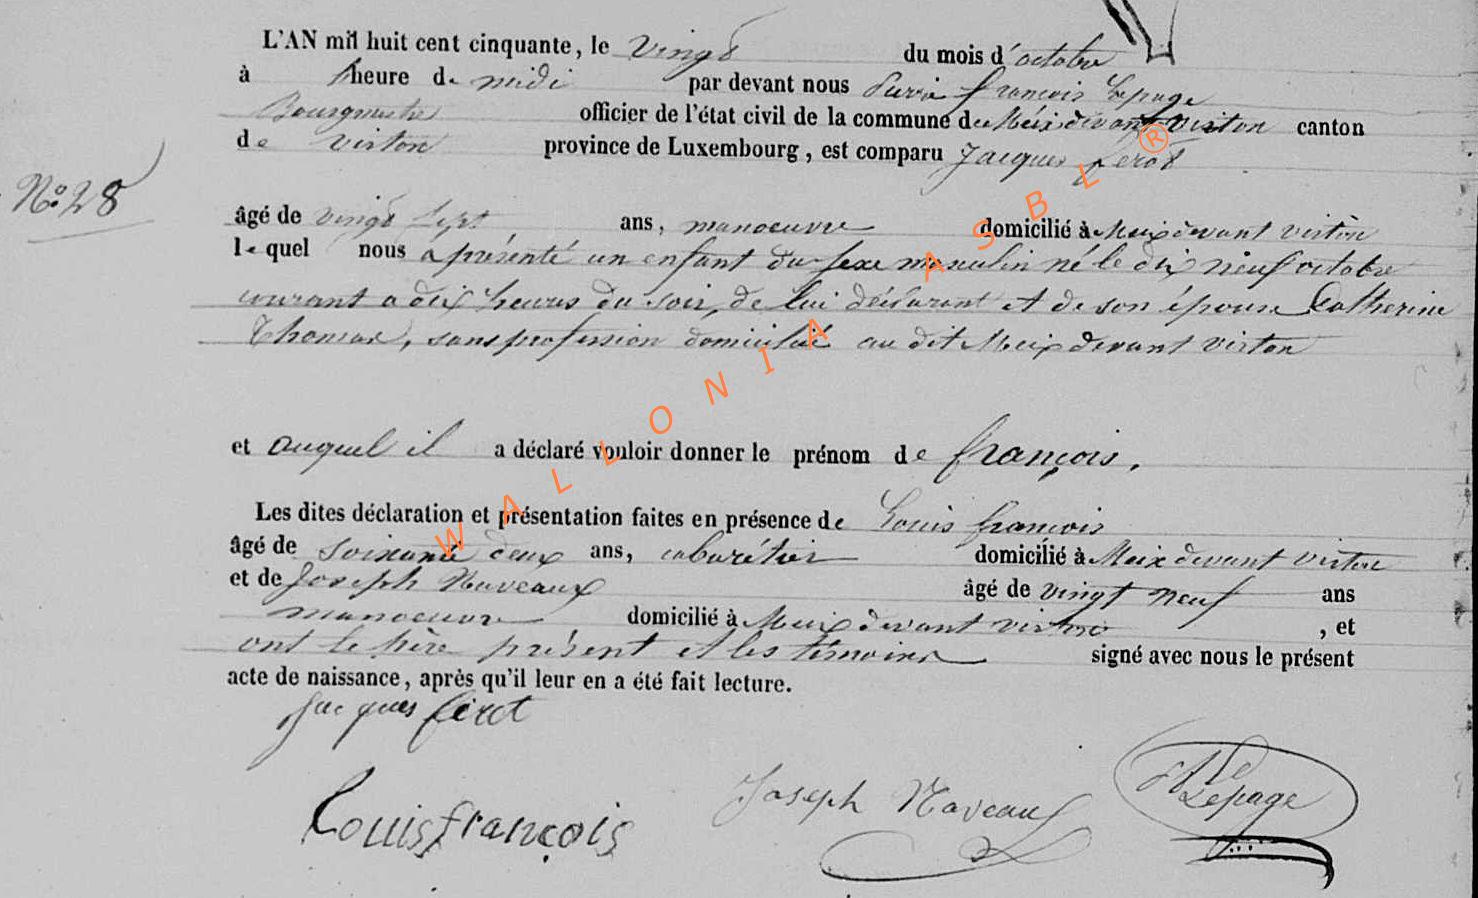 L'AN mil huit cent cinquante, le vingt du mois d'octobre
à heure de midi par devant nous Pierre françois Lepage
Bourgmestre officier de l'état civil de la commune de Meix devant Virton canton
de virton province de Luxembourg, est comparu Jacques ferot
N° 28
âgé de vingt sept ans, manoeuvre domicilié à Meix devant virton
lequel nous a présenté un enfant du sexe masculin né le dix neuf octobre
courant a dix heures du soir, de lui déclarant et de son épouse Catherine
Thomas, sans profession domicilié au dit Meix devant virton
et auquel il a déclaré vouloir donner le prénom de françois.
Les dites déclaration et présentation faites en présence de Louis françois
âgé de soixante deux ans, cabarétier domicilié à Meix devant virton
et de Joseph Naveaux âgé de vingt neuf ans
manoeuvre domicilié à Meix devant virton, et
ont le père présent et les témoins signé avec nous le présent
acte de naissance, après qu'il leur en a été fait lecture.
jacques ferot
Louis françois
Joseph Naveaux
Lepage
WALLONIA ASBL ®